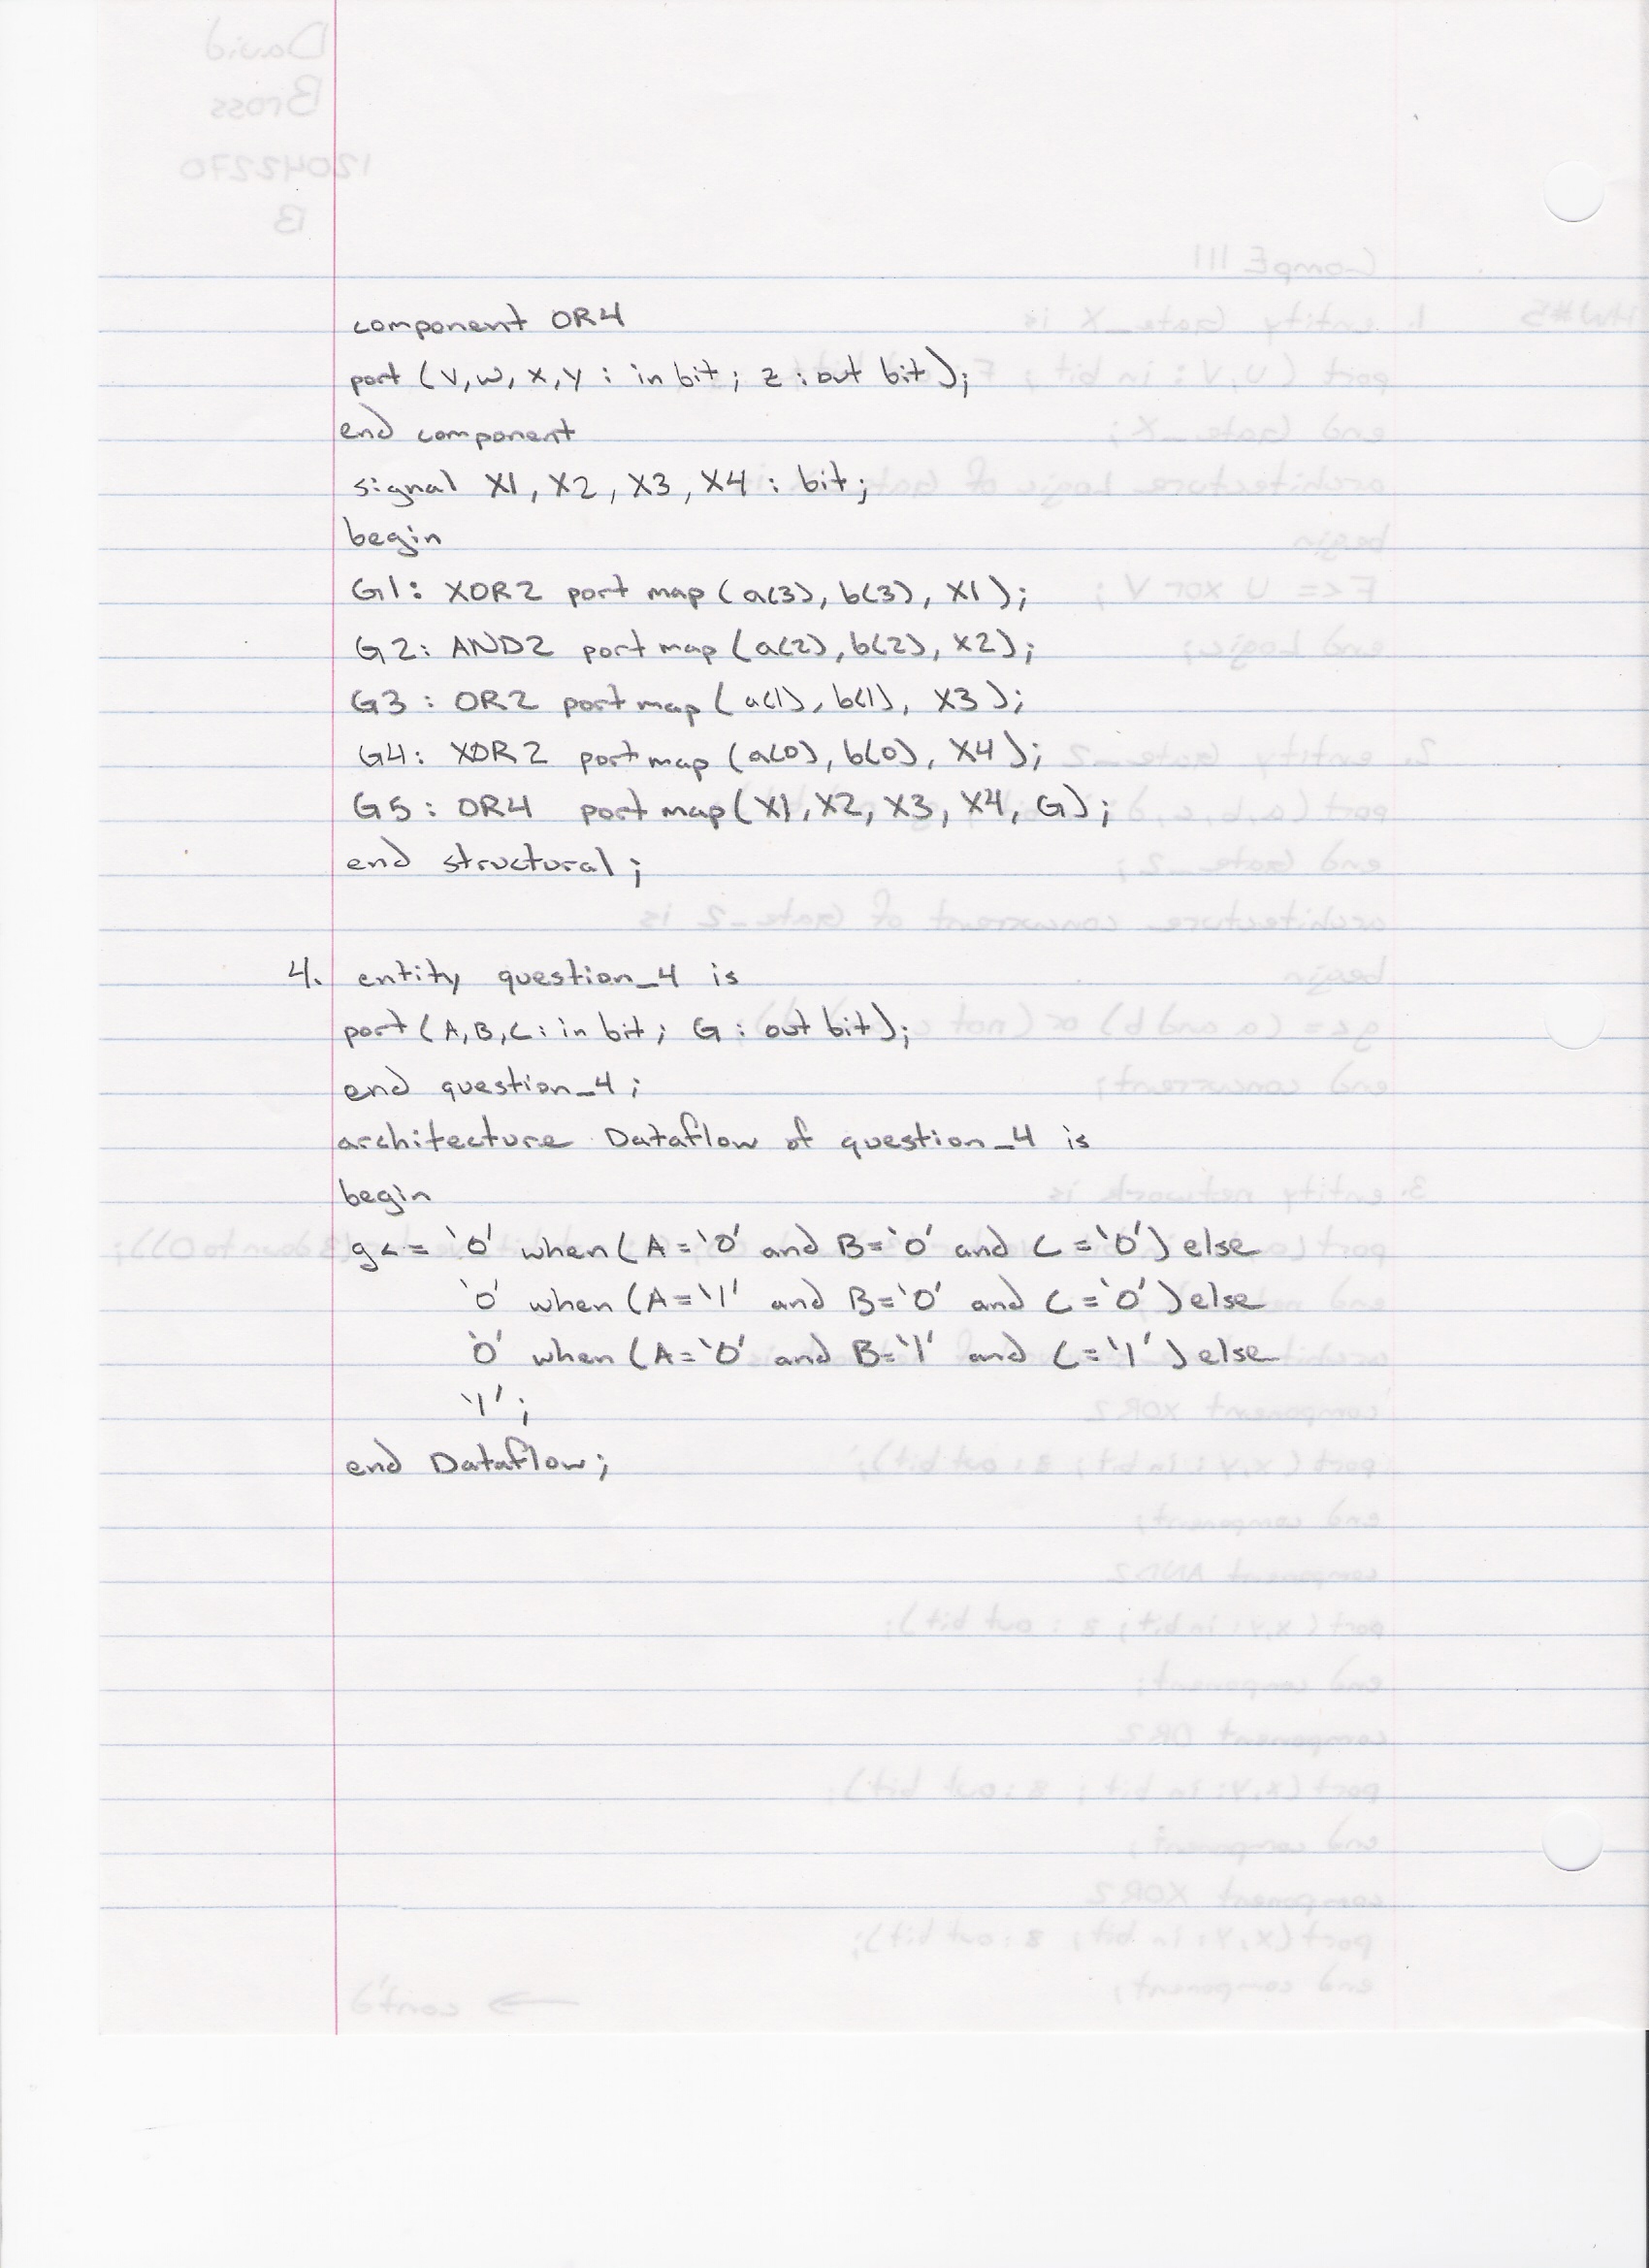 component OR4
port (v,w,x,y : in bit ; z : out bit );
end component
signal X1, X2, X3, X4 : bit;
begin
G1: XOR2 port map (a(3), b(3), X1);
G2: AND2 port map (a(2), b(2), X2);
G3: OR2 port map (a(1), b(1), X3);
G4: XOR2 port map (a(0), b(0), X4);
G5: OR4 port map (X1, X2, X3, X4, G);
end structural;
4. entity question_4 is
port (A,B,C: in bit; G : out bit);
end question_4;
architecture Dataflow of question_4 is
begin
g<= '0' when (A='0' and B='0' and C='0') else
'0' when (A='1' and B='0' and C='0') else
'0' when (A='0' and B='1' and C='1') else
'1';
end Dataflow;